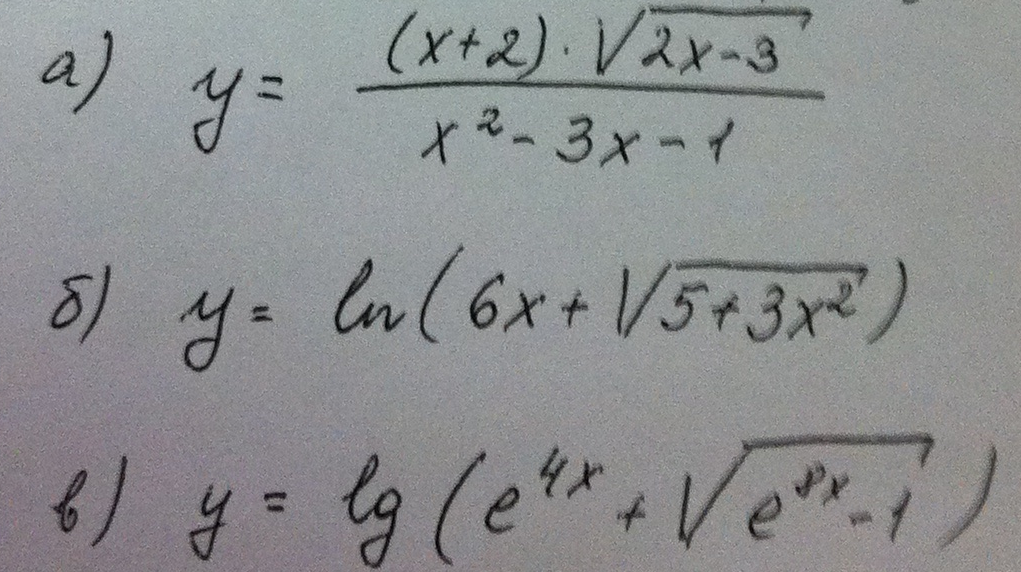 а) y = (x+2)·√(2x-3) / (x² - 3x - 1)
б) y = ln(6x + √(5+3x²))
в) y = lg(e^(4x) + √(e^(8x) - 1))